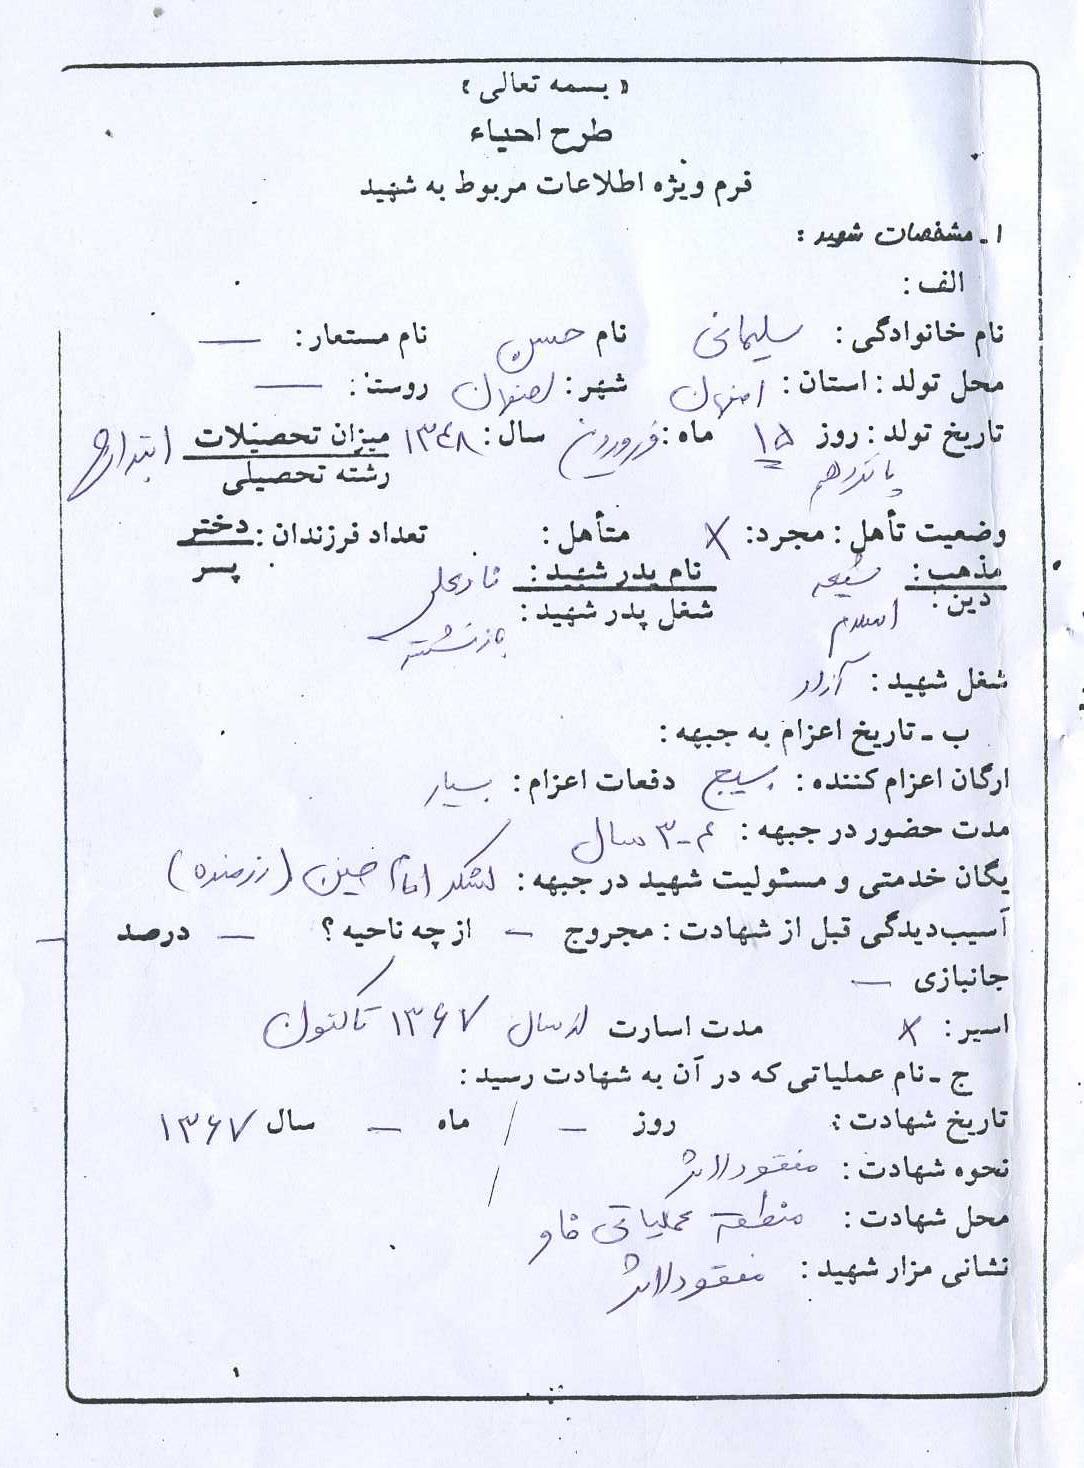 « بسمه تعالی »
طرح احیاء
فرم ویژه اطلاعات مربوط به شهید
۱ـ مشخصات شهید :
الف :
نام خانوادگی : سلیمانی نام حسن نام مستعار : —
محل تولد : استان : اصفهان شهر : اصفهان روستا : —
تاریخ تولد : روز ۱۵ ماه : فروردین سال : ۱۳۴۸ میزان تحصیلات ابتدایی
پانزدهم رشته تحصیلی
وضعیت تأهل : مجرد : X متأهل : تعداد فرزندان : دختر
پسر
مذهب : شیعه نام پدر شهید :
دین : اسلام شغل پدر شهید : بازنشسته
شغل شهید : آزاد
ب ـ تاریخ اعزام به جبهه :
ارگان اعزام کننده : بسیج دفعات اعزام : بسیار
مدت حضور در جبهه : ۳-۴ سال
یگان خدمتی و مسئولیت شهید در جبهه : لشکر امام حسین (رزمنده)
آسیب‌دیدگی قبل از شهادت : مجروح – از چه ناحیه ؟ – درصد –
جانبازی —
اسیر : X مدت اسارت از سال ۱۳۶۷ تاکنون
ج ـ نام عملیاتی که در آن به شهادت رسید :
تاریخ شهادت : روز – / ماه – سال ۱۳۶۷
نحوه شهادت : مفقودالاثر /
محل شهادت : منطقه عملیاتی فاو
نشانی مزار شهید : مفقودالاثر
۱